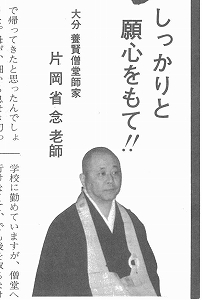 しっかりと
願心をもて!!
大分 養賢僧堂師家
片岡省念老師
で帰ってきたと思ったんでしょ
学校に勤めていますが、僧堂へ